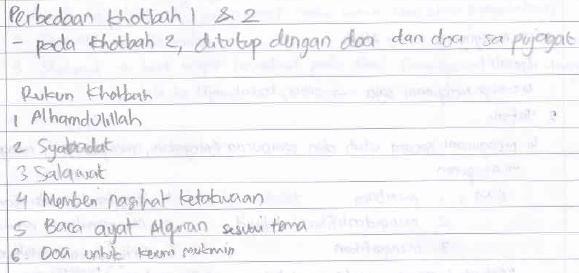 Perbedaan khotbah 1 & 2
- pada khotbah 2, ditutup dengan doa dan doa sapujagat
Rukun Khotbah
1 Alhamdulillah
2 Syahadat
3 Salawat
4 Memberi nasihat ketakwaan
5 Baca ayat Alquran sesuai tema
6 Doa untuk kaum mukmin